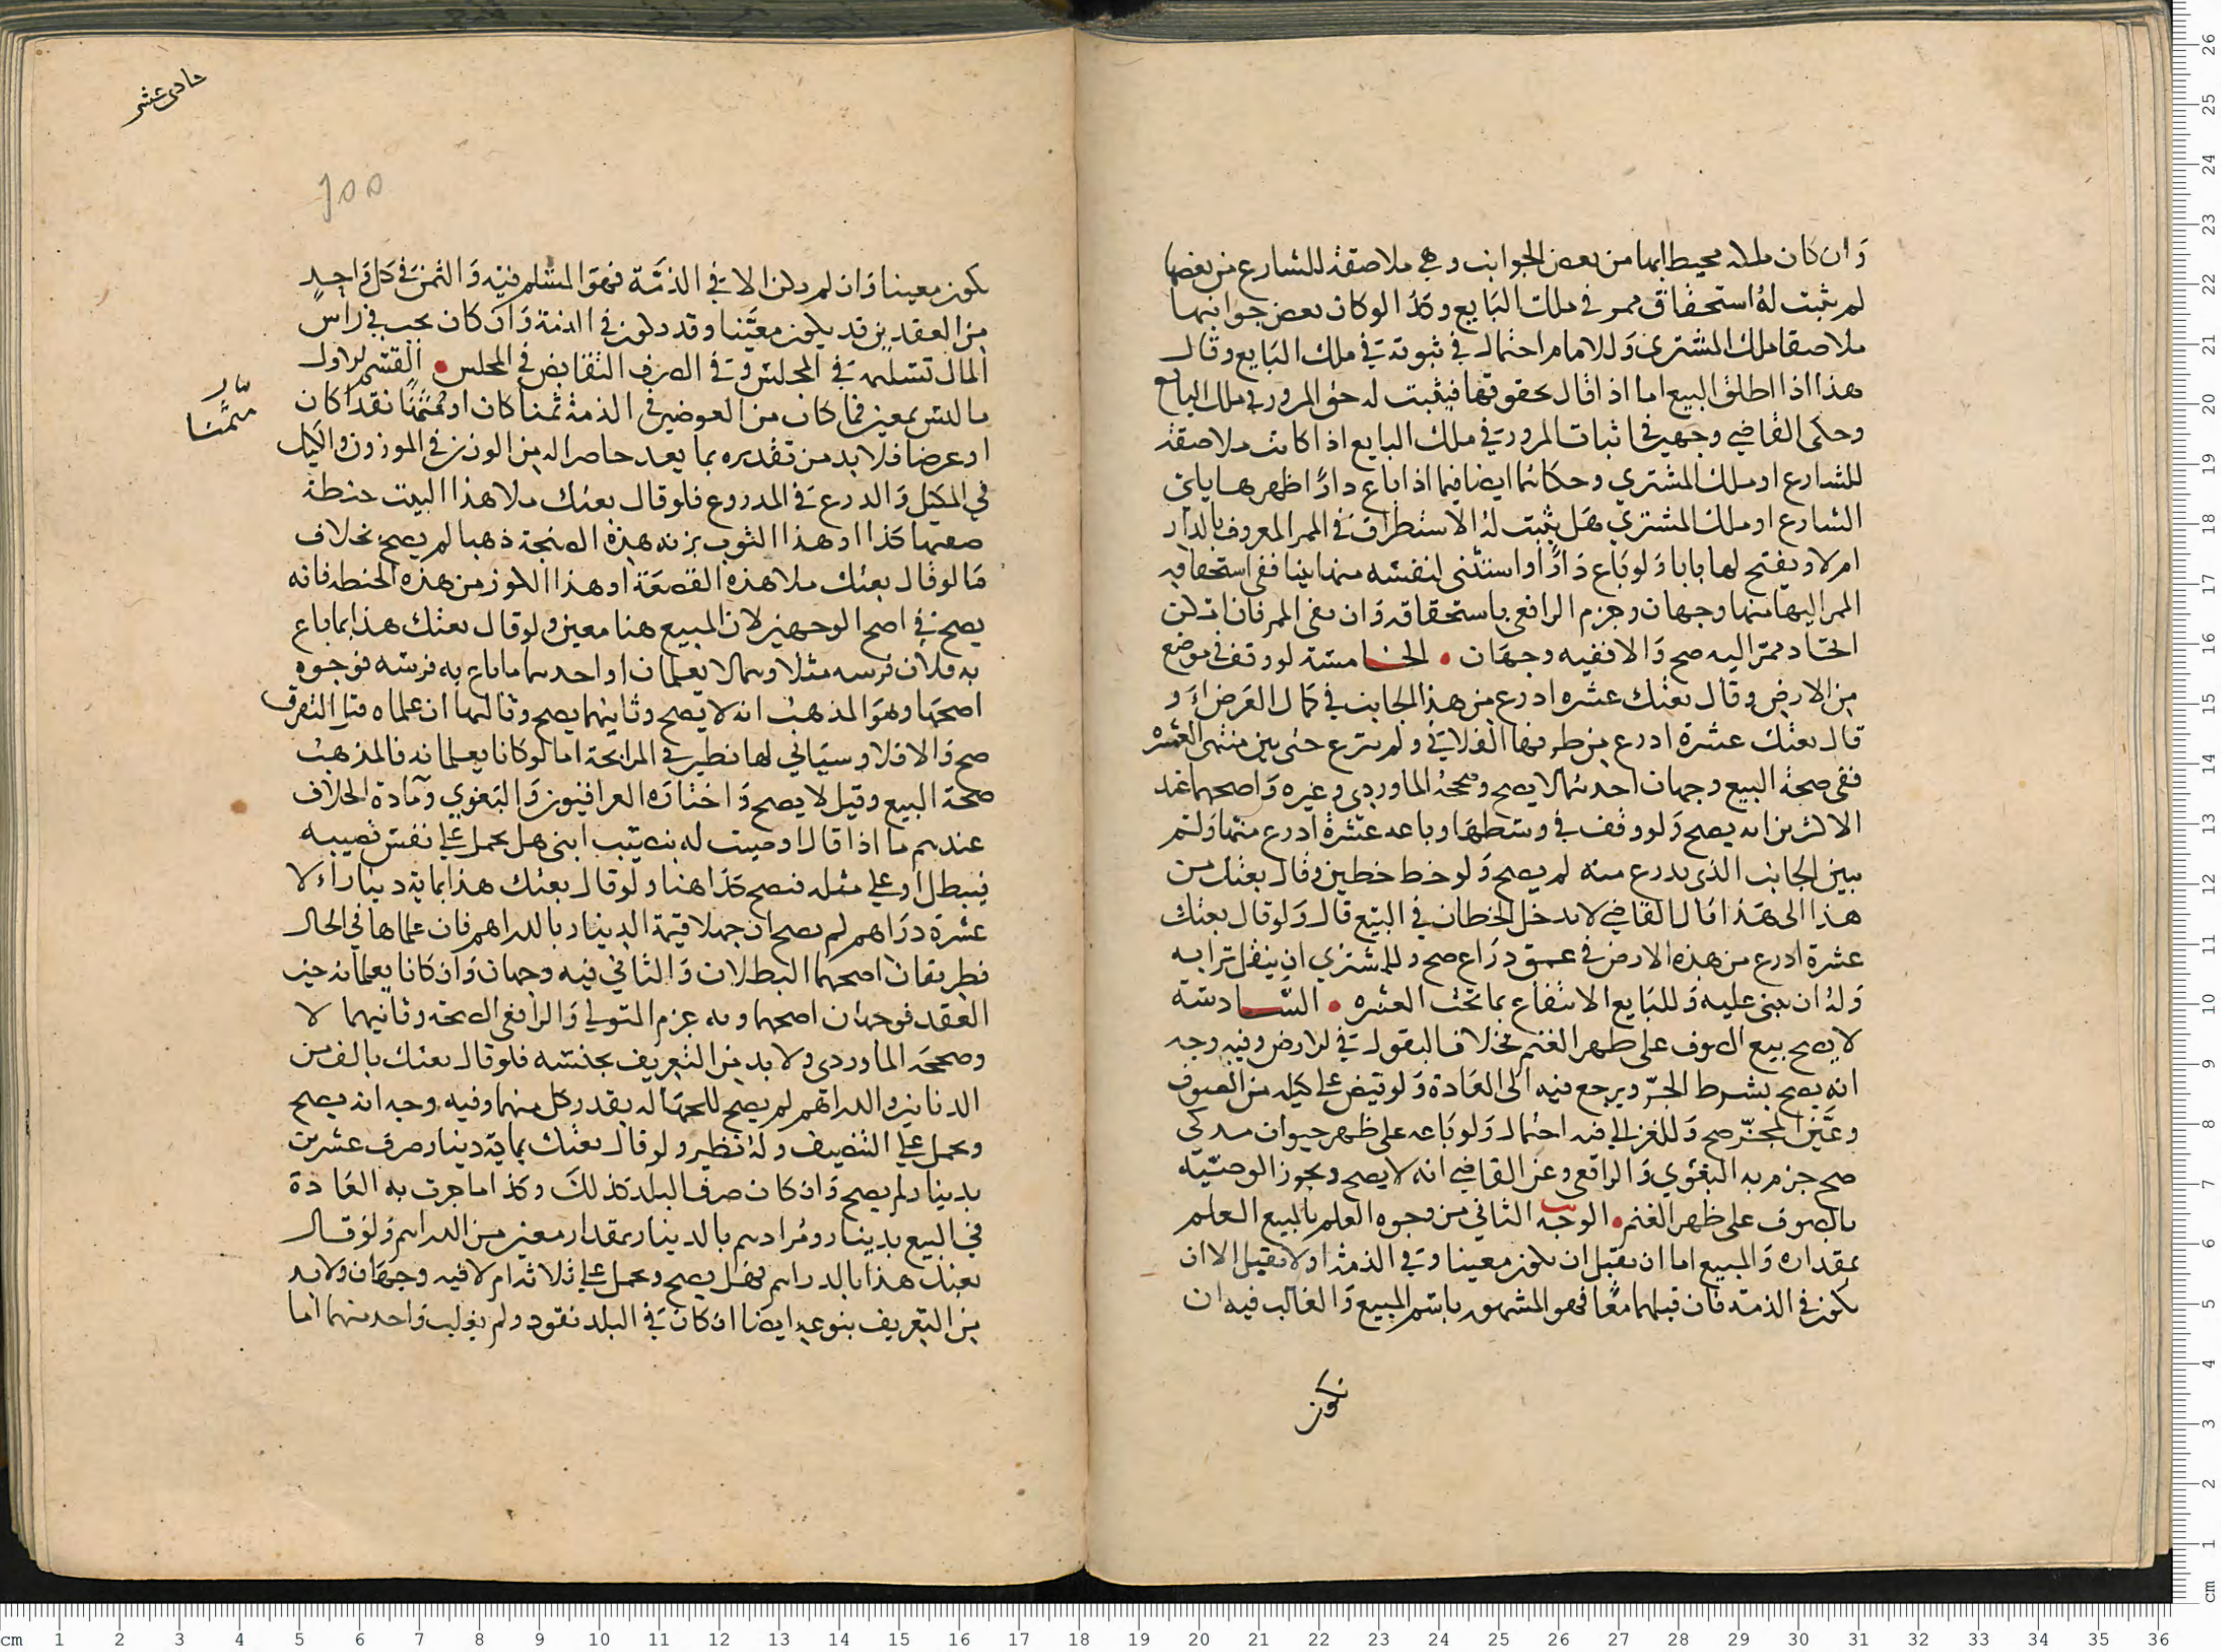 وان كان ملكه محيطا بها من بعض الجوانب وهي ملاصقة للشارع من بعضها
لم يثبت له استحقاق ممر في ملك البايع وكذا لو كان بعض جوانبها
ملاصقا ملك المشتري وللامام احتمال في ثبوته في ملك البايع وقال
هذا اذا اطلق البيع اما اذا قال بحقوقها فيثبت له حق المرور في ملك البايع
وحكى القاضي وجهين في اثبات المرور في ملك البايع اذا كانت ملاصقة
للشارع او ملك المشتري وحكاهما ايضا فيما اذا باع دارا ظهرها يلي
الشارع او ملك المشتري هل يثبت له الاستطراق في الممر المعروف بالدار
ام لا ويفتح لها بابا ولو باع دارا واستثنى لنفسه منها بيتا ففي استحقاقه
الممر اليها منها وجهان وجزم الرافعي باستحقاقه وان نفى الممر فان امكن
اتخاد ممر اليه صح والا ففيه وجهان • الخامسة لو وقف في موضع
من الارض وقال بعتك عشرة ادرع من هذا الجانب في كمال العرض او
قال بعتك عشرة ادرع من طرفها الفلاني ولم يدرع حتى يبين منتهى العشرة
ففي صحة البيع وجهان احدهما لا يصح وصححه الماوردي وغيره واصحهما عند
الاكثرين انه يصح ولو وقف في وسطها وباعه عشرة ادرع منها ولم
يبين الجانب الذي يدرع منه لم يصح ولو خط خطين وقال بعتك من
هذا الى هذا قال القاضي لا يدخل الخطان في البيع قال ولو قال بعتك
عشرة ادرع من هذه الارض في عمق دراع صح وللمشتري ان ينقل ترابه
وله ان يبني عليه وللبايع الانتفاع بما تحت العشرة • السادسة
لا يصح بيع الصوف على ظهر الغنم بخلاف البقول في الارض وفيه وجه
انه يصح بشرط الجز ويرجع فيه الى العادة ولو قبض على كيله من الصوف
وعين المجز صح وللغزالي فيه احتمال ولو باعه على ظهر حيوان مذكى
صح جزم به البغوي والرافعي وعن القاضي انه لا يصح وتجوز الوصية
بالصوف على ظهر الغنم • الوجه الثاني من وجوه العلم بالمبيع العلم
بمقداره والمبيع اما ان يقبل ان يكون معينا وفي الذمة او لا يقبل الا ان
يكون في الذمة فان قبلهما معا فهو المشهور باسم المبيع والغالب فيه ان
يكون
حادي عشر
١٥٥
يكون معينا وان لم يكن الا في الذمة فهو المسلم فيه والثمن في كل واحد
من العقدين قد يكون معينا وقد يكون في الذمة وان كان يجب في راس
المال تسليمه في المجلس وفي الصرف التقابض في المجلس • القسم الاول
ما ليس بمعين فما كان من العوضين في الذمة ثمنا كان او مثمنا نقدا كان
مثمنا
او عرضا فلا بد من تقديره بما يعد حاصرا له من الوزن في الموزون والكيل
في المكيل والدرع في المدروع فلو قال بعتك ملا هذا البيت حنطة
صفتها كذا او هذا الثوب بزنة هذه الصنجة ذهبا لم يصح بخلاف
ما لو قال بعتك ملا هذه القصعة او هذا الكوز من هذه الحنطة فانه
يصح في اصح الوجهين لان المبيع هنا معين ولو قال بعتك هذا بما باع
به فلان فرسه مثلا وهما لا يعلمان او احدهما ما باع به فرسه فوجوه
اصحها وهو المذهب انه لا يصح وثانيها يصح وثالثها ان علماه قبل التفرق
صح والا فلا وسياتي لها نظير في المرابحة اما لو كانا يعلمانه فالمذهب
صحة البيع وقيل لا يصح واختاره العراقيون والبغوي ومادة الخلاف
عندهم ما اذا قال اوصيت له بنصيب ابني هل يحمل على نفس نصيبه
فيبطل او على مثله فتصح كذا هنا ولو قال بعتك هذا بماية دينار الا
عشرة دراهم لم يصح ان جهلا قيمة الدينار بالدراهم فان علماها في الحال
فطريقان اصحهما البطلان والثاني فيه وجهان وان كانا يعلمانه حين
العقد فوجهان اصحهما وبه جزم المتولي والرافعي الصحة وثانيهما لا
وصححه الماوردي ولا بد من التعريف بجنسه فلو قال بعتك بالف من
الدنانير والدراهم لم يصح للجهالة بقدر كل منهما وفيه وجه انه يصح
ويحمل على التنصيف وله نظير ولو قال بعتك بماية دينار صرف عشرين
بدينار لم يصح وان كان صرف البلد كذلك وكذا ما جرت به العادة
في البيع بدينار ومرادهم بالدينار بمقدار معين من الدراهم ولو قال
بعتك هذا بالدراهم فهل يصح ويحمل على ثلاثة ام لا فيه وجهان ولا بد
من التعريف بنوعه ايضا ان كان في البلد نقود ولم يغلب واحد منهما اما